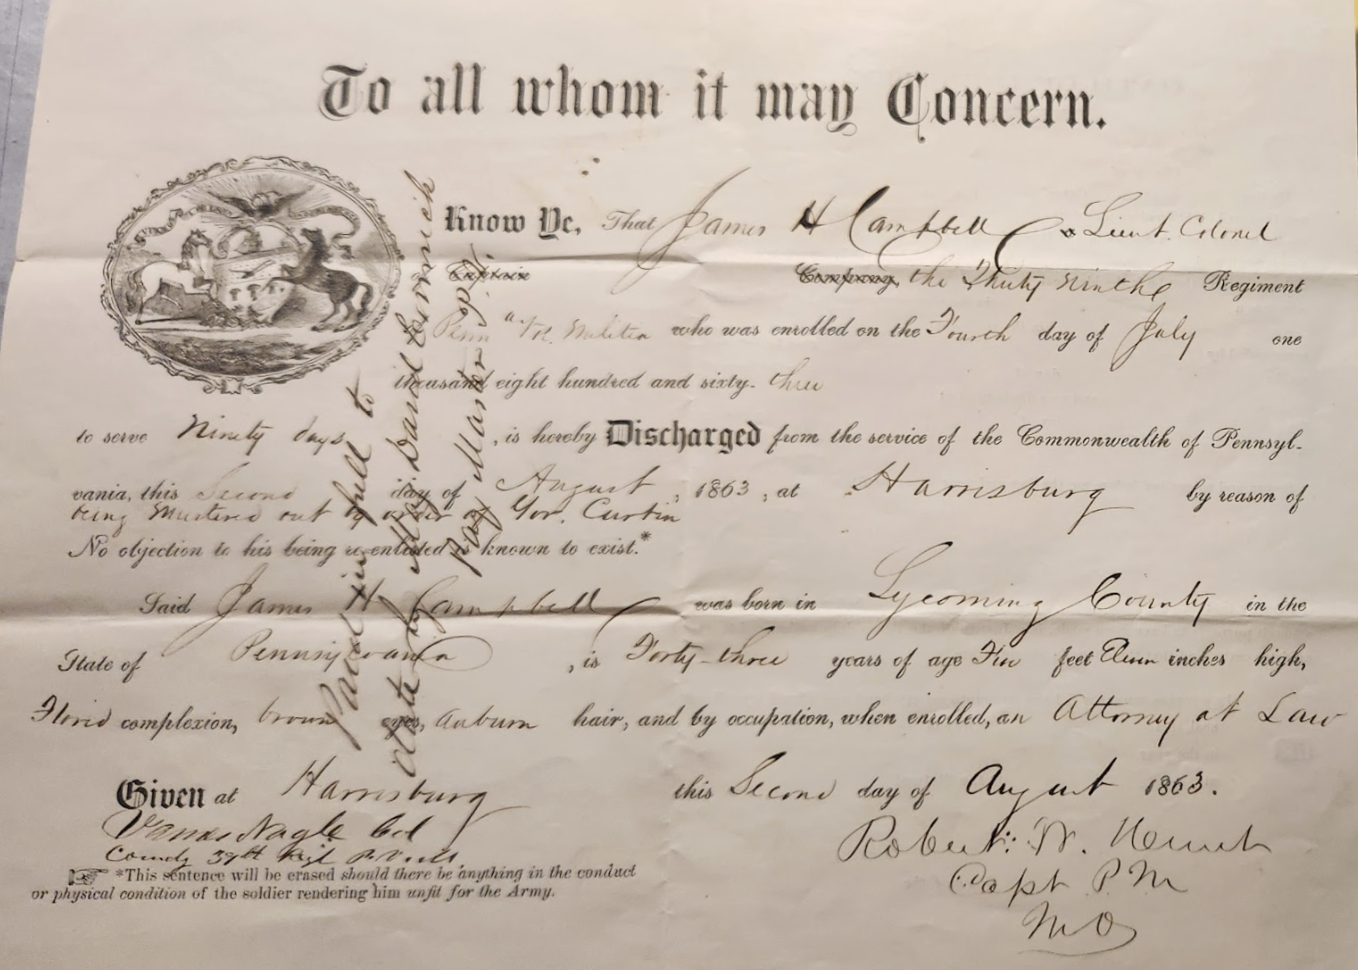 To all whom it may Concern.
Know Ye, That James H Campbell a Lieut. Colonel
Captain Company, the Thirty Ninthe Regiment
Penn" Vol. Militia who was enrolled on the Fourth day of July one
thousand eight hundred and sixty-three
to serve Ninety days, is hereby Discharged from the service of the Commonwealth of Pennsyl-
vania, this Second day of August, 1863, at Harrisburg by reason of
being Mustered out by order of Gov. Curtin
No objection to his being re-enlisted is known to exist.*
Said James H Campbell was born in Lycoming County in the
State of Pennsylvania, is Forty-three years of age Five feet Eleven inches high,
Florid complexion, brown eyes, Auburn hair, and by occupation, when enrolled, an Attorney at Law
Given at Harrisburg this Second day of August 1863.
James Nagle Col
Comdg 39th Regt P.V.
Robert W.
Capt P.M
M O
*This sentence will be erased should there be anything in the conduct
or physical condition of the soldier rendering him unfit for the Army.
Paid in full to
date by Maj David
Pay Master